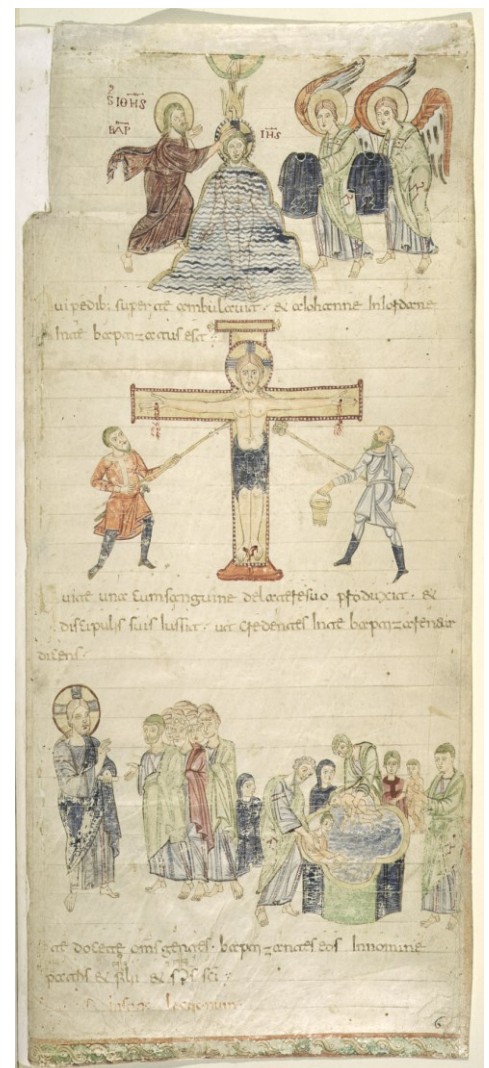 S IOHS
BAP
IHS
ui pedib: super te ambulauit · & a Iohanne In Iordane
In te baptizatus est
ui te una cum sanguine de latere suo produxit · &
discipulis suis iussit · ut credentes In te baptizarentur
dicens ·
te docete oms gentes · baptizantes eos In nomine
patris & filii & sps sci
6